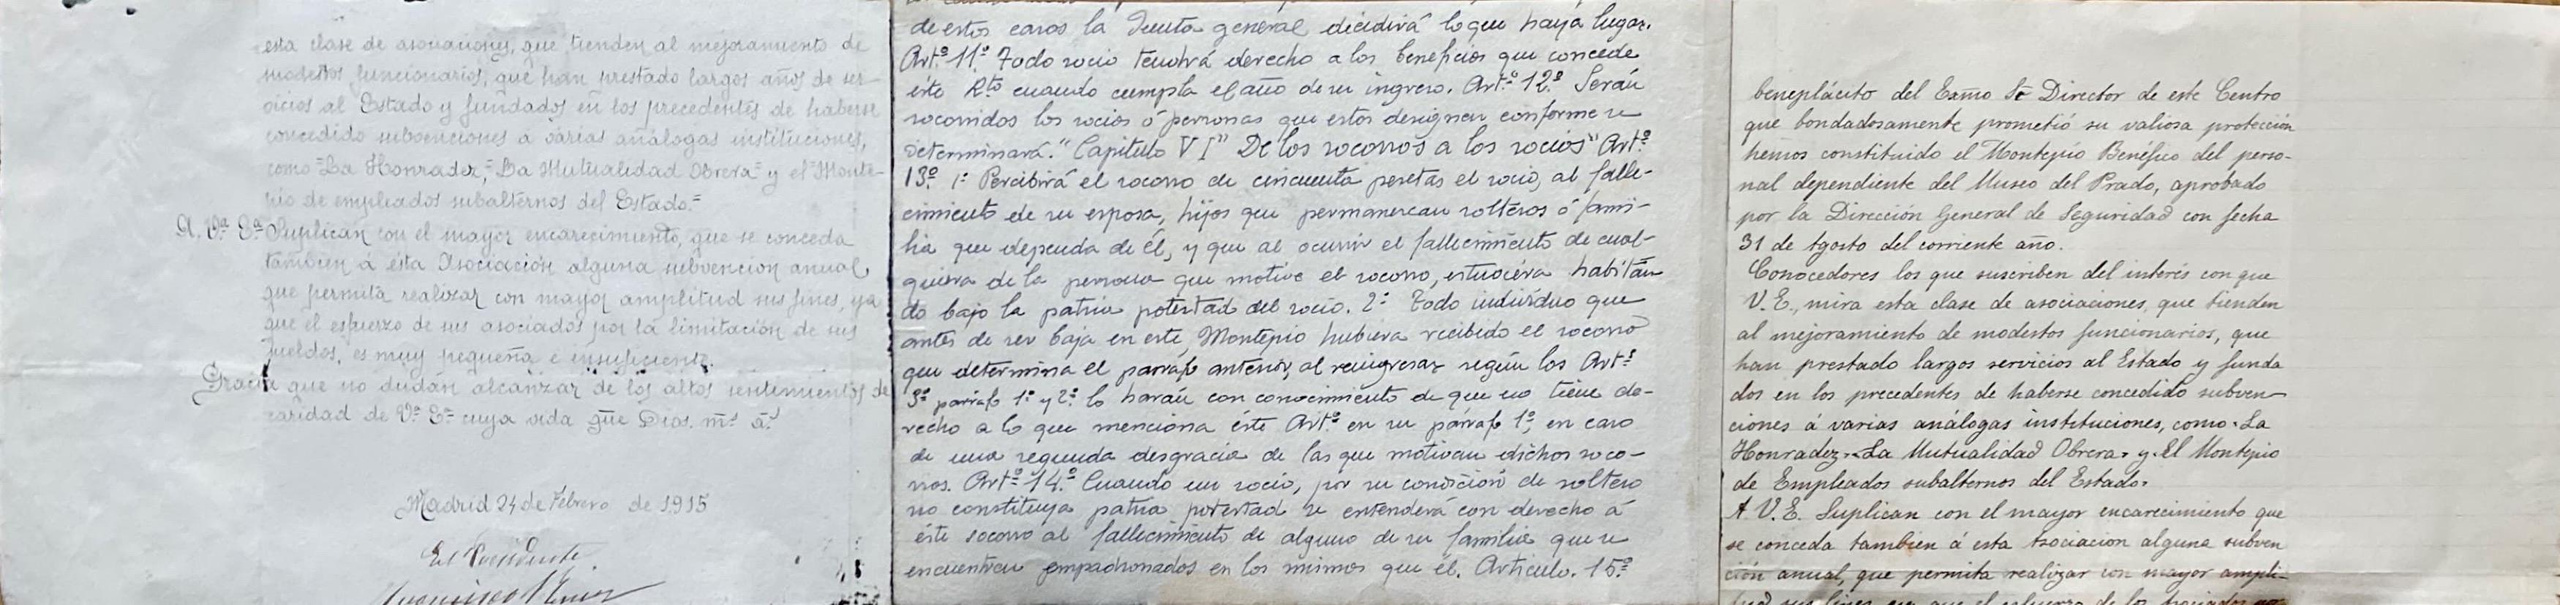 esta clase de asociaciones, que tienden al mejoramiento de
modestos funcionarios, que han prestado largos años de ser-
vicios al Estado y fundados en los precedentes de haberse
concedido subvenciones a varias análogas instituciones,
como "La Honradez," "La Mutualidad Obrera" y el "Monte-
pio de empleados subalternos del Estado."
A. Vª Eª Suplican con el mayor encarecimiento, que se conceda
también á ésta Asociación alguna subvencion anual,
que permita realizar con mayor amplitud sus fines, ya
que el esfuerzo de sus asociados por la limitación de sus
sueldos, es muy pequeña e insuficiente.
Gracia que no dudán alcanzar de los altos sentimientos de
caridad de Vª Eª cuya vida gũe Dios. mˢ aˢ
Madrid 24 de Febrero de 1915
El Presidente.
Francisco
de estos casos la Junta general decidirá lo que haya lugar.
Artº 11º Todo socio tendrá derecho a los beneficios que concede
éste Rto cuando cumpla el año de su ingreso. Artº 12º Serán
socorridos los socios ó personas que estos designen conforme se
determinará." Capitulo VI" De los socorros a los socios" Artº
13º 1º Percibirá el socorro de cincuenta pesetas el socio, al falle-
cimiento de su esposa, hijos que permanezcan solteros ó fami-
lia que dependa de él, y que al ocurrir el fallecimiento de cual-
quiera de la persona que motive el socorro, estuviéra habitan
do bajo la patria potestad del socio. 2º Todo indivíduo que
antes de ser baja en este Montepio hubiera recibido el socorro
que determina el parrafo anterior, al reingresar según los Artˢ
3º parrafo 1º y 2º lo harán con conocimiento de que no tiene de-
recho a lo que menciona éste Artº en su párrafo 1º, en caso
de una segunda desgracia de las que motivan dichos soco-
rros. Artº 14º Cuando un socio, por su condición de soltero
no constituya patria potestad se entenderá con derecho á
éste socorro al fallecimiento de alguno de su familia que se
encuentren empadronados en los mismos que él. Articulo. 15º
beneplácito del Exmo Sr Director de este Centro
que bondadosamente prometió su valiosa protección
hemos constituido el Montepio Benéfico del perso-
nal dependiente del Museo del Prado, aprobado
por la Dirección General de Seguridad con fecha
31 de Agosto del corriente año.
Conocedores los que suscriben del interés con que
V. E., mira esta clase de asociaciones, que tienden
al mejoramiento de modestos funcionarios, que
han prestado largos servicios al Estado y funda
dos en los precedentes de haberse concedido subven-
ciones á varias análogas instituciones, como "La
Honradez" "La Mutualidad Obrera" y "El Montepio
de Empleados subalternos del Estado"
A V. E. Suplican con el mayor encarecimiento que
se conceda tambien á esta Asociacion alguna subven
ción anual, que permita realizar con mayor ampli-
tud sus fines, ya que el esfuerzo de los asociados no